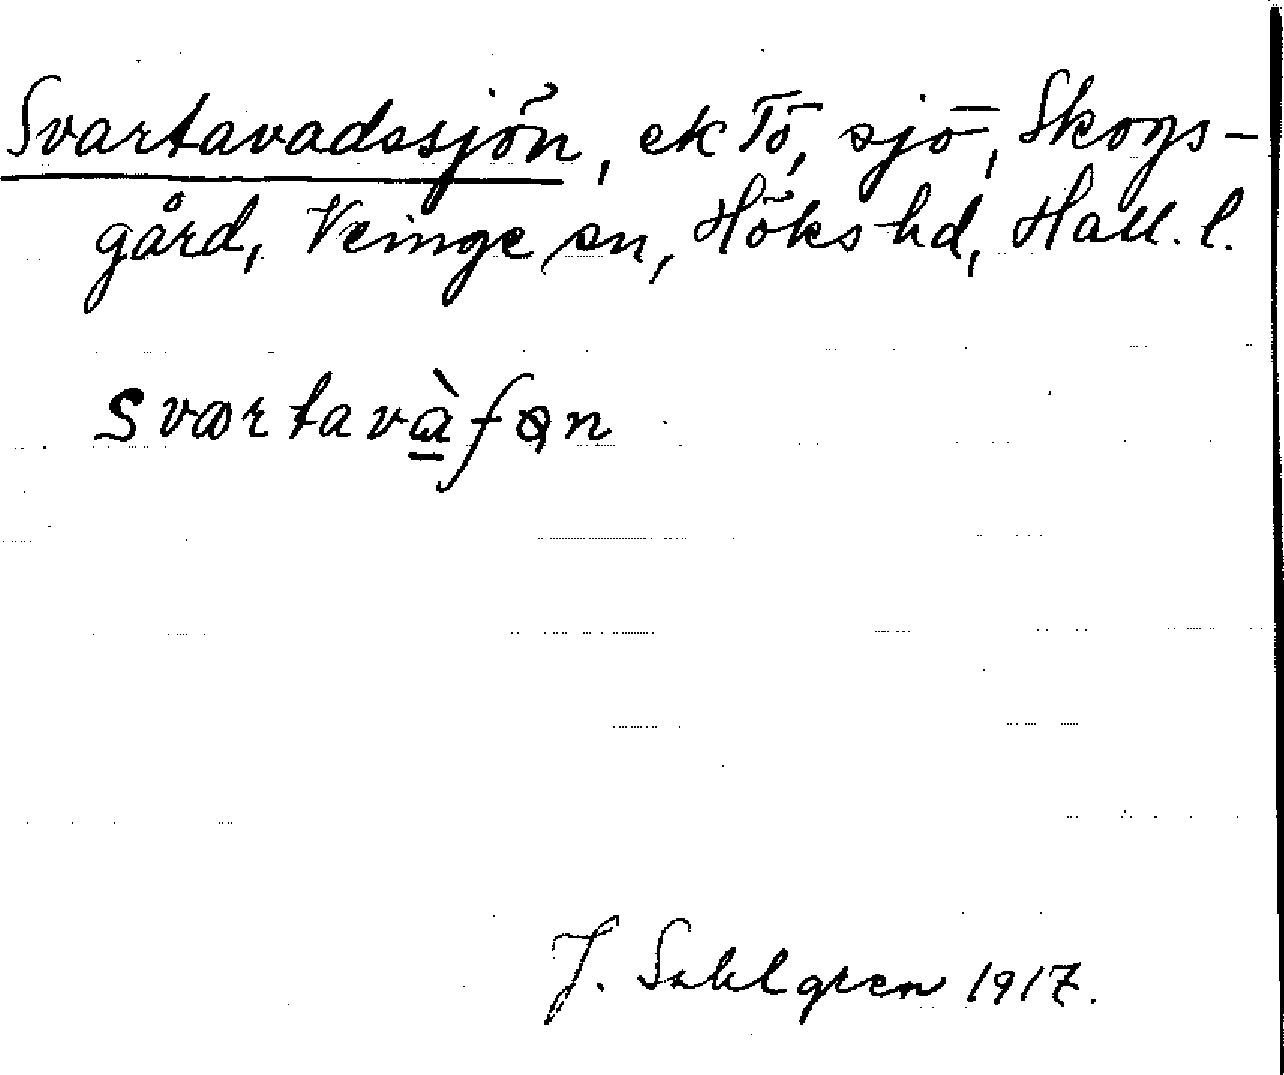 Svartavadssjön, ek Tö, sjö, Skogs-
gård, Veinge sn, Höks hd, Hall. l.
J. Sahlgren 1917.